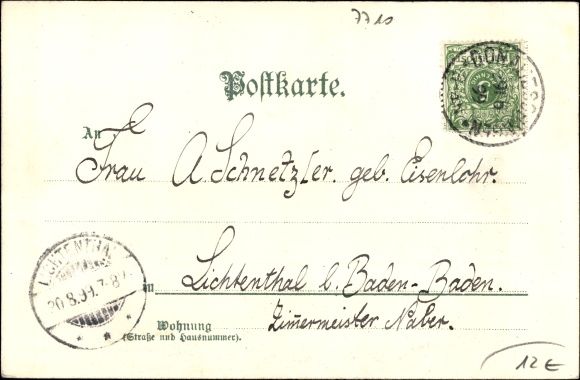 7710
Postkarte.
An
Frau A. Schnetzler. geb. Eisenlohr.
LICHTENTHAL
20.8.99.7-8V.
in Lichtenthal b. Baden-Baden.
Zimmermeister Naber.
Wohnung
(Straße und Hausnummer).
12 E